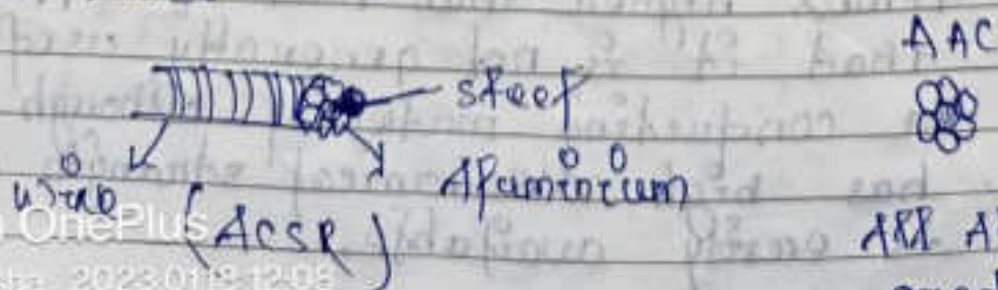 AAC
steel
Aluminium
wire
(ACSR)
OnePlus
2023-01-18 12:08
All A